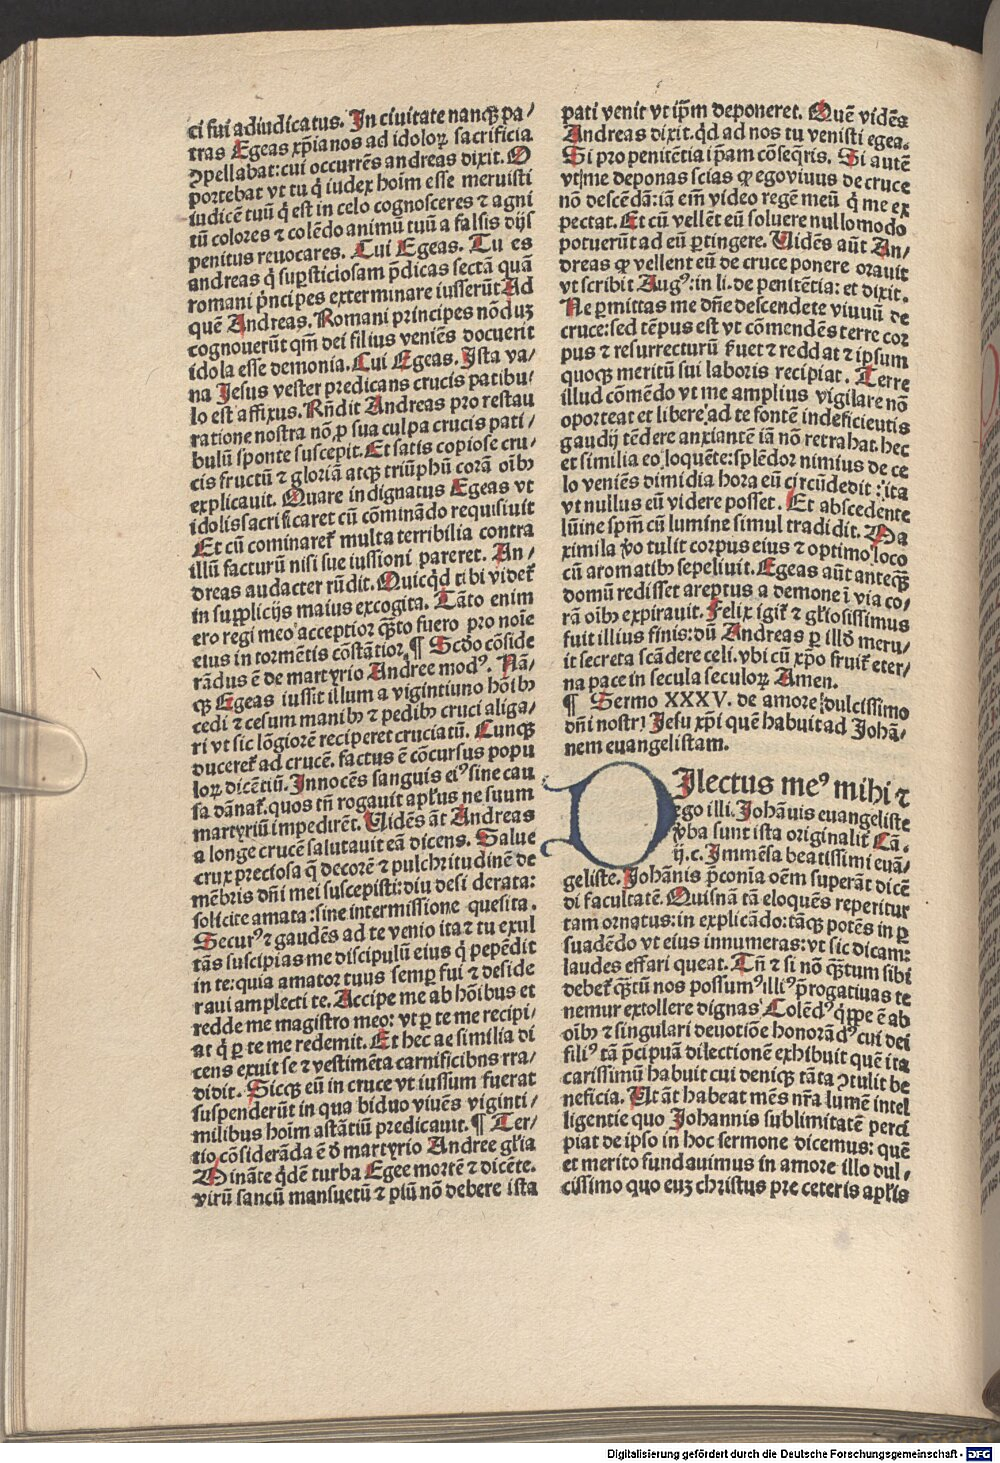 ci fui adiudicatus. In ciuitate nanqꝫ pa⸗
tras Egeas xp̄ianos ad idoloꝝ sacrificia
ꝯpellabat: cui occurrēs andreas dixit. O
portebat vt tu q̇ iudex hoīm esse meruisti
iudicē tuū q̇ est in celo cognosceres ⁊ agni
tū colores ⁊ colēdo animū tuū a falsis dijs
penitus reuocares. Cui Egeas. Tu es
andreas q̇ suꝑsticiosam p̄dicas sectā quā
romani pͥncipes exterminare iusserūt Ad
quē Andreas. Romani principes nōduꝫ
cognouerūt qm̄ dei filius veniēs docuerit
idola esse demonia. Cui Egeas. Ista va⸗
na Jesus vester predicans crucis patibu⸗
lo est affixus. Rn̄dit Andreas pro restau
ratione nostra nō ꝓ sua culpa crucis pati⸗
bulū sponte suscepit. Et satis copiose cru⸗
cis fructū ⁊ gloriā atqꝫ triūphū corā oībꝫ
explicauit. Quare indignatus Egeas vt
idolis sacrificaret cū cōminādo requisiuit
Et cū cominareť multa terribilia contra
illū facturū nisi sue iussioni pareret. An⸗
dreas audacter rn̄dit. Quicq̇d tibi videť
in suppliciis maius excogita. Tāto enim
ero regi meo acceptior qꝫ̄to fuero pro noīe
eius in tormētis cōstātior. ¶ Scdo cōside
rādus ē de martyrio Andree modꝰ. Nā⸗
qꝫ Egeas iussit illum a vigintiuno hōibꝫ
cedi ⁊ cesum manibꝫ ⁊ pedibꝫ cruci aliga⸗
ri vt sic lōgiorē reciperet cruciatū. Cunqꝫ
ducereť ad crucē. factus ē cōcursus popu
loꝝ dicētiū. Innocēs sanguis eiꝰ sine cau
sa dānať. quos tn̄ rogauit apl̄us ne suum
martyriū impedirēt. Uidēs āt Andreas
a longe crucē salutauit eā dicens. Salue
crux preciosa q̄ decorē ⁊ pulchritudinē de
mēbris dn̄i mei suscepisti: diu desi derata:
solicite amata: sine intermissione quesita.
Securꝰ ⁊ gaudēs ad te venio ita ⁊ tu exul
tās suscipias me discipulū eius q̇ pepēdit
in te: quia amator tuus semꝑ fui ⁊ deside
raui amplecti te. Accipe me ab hōibus et
redde me magistro meo: vt ꝑ te me recipi⸗
at q̇ ꝑ te me redemit. Et hec ac similia di
cens exuit se ⁊ vestimēta carnificibns rra⸗
didit. Sicqꝫ eū in cruce vt iussum fuerat
suspenderūt in qua biduo viuēs viginti⸗
milibus hoīm astātiū predicauit. ¶ Ter⸗
tio cōsiderāda ē ō martyrio Andree gl̄ia
Mināte q̇dē turba Egee mortē ⁊ dicēte.
virū sanctū mansuetū ⁊ piū nō debere ista
pati venit vt ip̄m deponeret. Quē vidēs
Andreas dixit. q̇d ad nos tu venisti egea.
Si pro penitētia ip̄am cōseq̇ris. Si autē
vt me deponas scias ꝙ ego viuus de cruce
nō descēdā: iā em̄ video regē meū q̇ me ex
pectat. Et cū vellēt eū soluere nullomodo
potuerūt ad eū ꝑtingere. Uidēs aūt An⸗
dreas ꝙ vellent eū de cruce ponere orauit
vt scribit Augꝰ: in li. de penitētia: et dixit.
Ne ꝑmittas me dn̄e descendete viuuū de
cruce: sed tēpus est vt cōmendēs terre cor
pus ⁊ resurrecturū ẜuet ⁊ reddat ⁊ ipsum
quoqꝫ meritū sui laboris recipiat. Terre
illud cōmēdo vt me amplius vigilare nō
oporteat et libere ad te fontē indeficieutis
gaudij tēdere anxiantē iā nō retrahat. hec
et similia eo loquēte: splēdor nimius de ce
lo veniēs dimidia hora eū circūdedit: ita
vt nullus eū videre posset. Et abscedente
lūine spm̄ cū lumine simul tradidit. Ma
ximila v̊o tulit corpus eius ⁊ optimo loco
cū aromatibꝫ sepeliuit. Egeas aūt anteqꝫ̄
domū redisset areptus a demone ī via co⸗
rā oībꝫ expirauit. Felix igiť ⁊ gl̄iosissimus
fuit illius finis: dū Andreas ꝑ illd̄ meru⸗
it secreta scādere celi. vbi cū xp̄o fruiť eter⸗
na pace in secula seculoꝝ Amen.
¶ Sermo XXXV. de amore dulcissimo
dn̄i nostri Jesu xp̄i quē habuit ad Johā⸗
nem euangelistam.
DIlectus meꝰ mihi ⁊
ego illi. Johānis euangeliste
v̊ba sunt ista originalit̄ Cā.
ij. c. Immēsa beatissimi euā⸗
geliste. Johānis p̄conia oēm superāt dicē
di facultatē. Quisnā tā eloquēs reperitur
tam ornatus: in explicādo: tāqꝫ potēs in ꝑ
suadēdo vt eius innumeras: vt sic dicam:
laudes effari queat. Tn̄ ⁊ si nō qꝫ̄tum sibi
debeť qꝫ̄tū nos possumꝰ illiꝰ p̄rogatiuas te
nemur extollere dignas Colēdꝰ q̇ppe ē ab
oībꝫ ⁊ singulari deuotiōe honorādꝰ cui dei
filiꝰ tā p̄cipuā dilectionē exhibuit quē ita
carissimū habuit cui deniqꝫ tāta ꝯtulit be
neficia. Ut āt habeat mēs nr̄a lumē intel
ligentie quo Johannis sublimitatē perci
piat de ipso in hoc sermone dicemus: quē
et merito fundauimus in amore illo dul⸗
cissimo quo euꝫ christus pre ceteris apl̄is
Digitalisierung gefördert durch die Deutsche Forschungsgemeinschaft - DFG